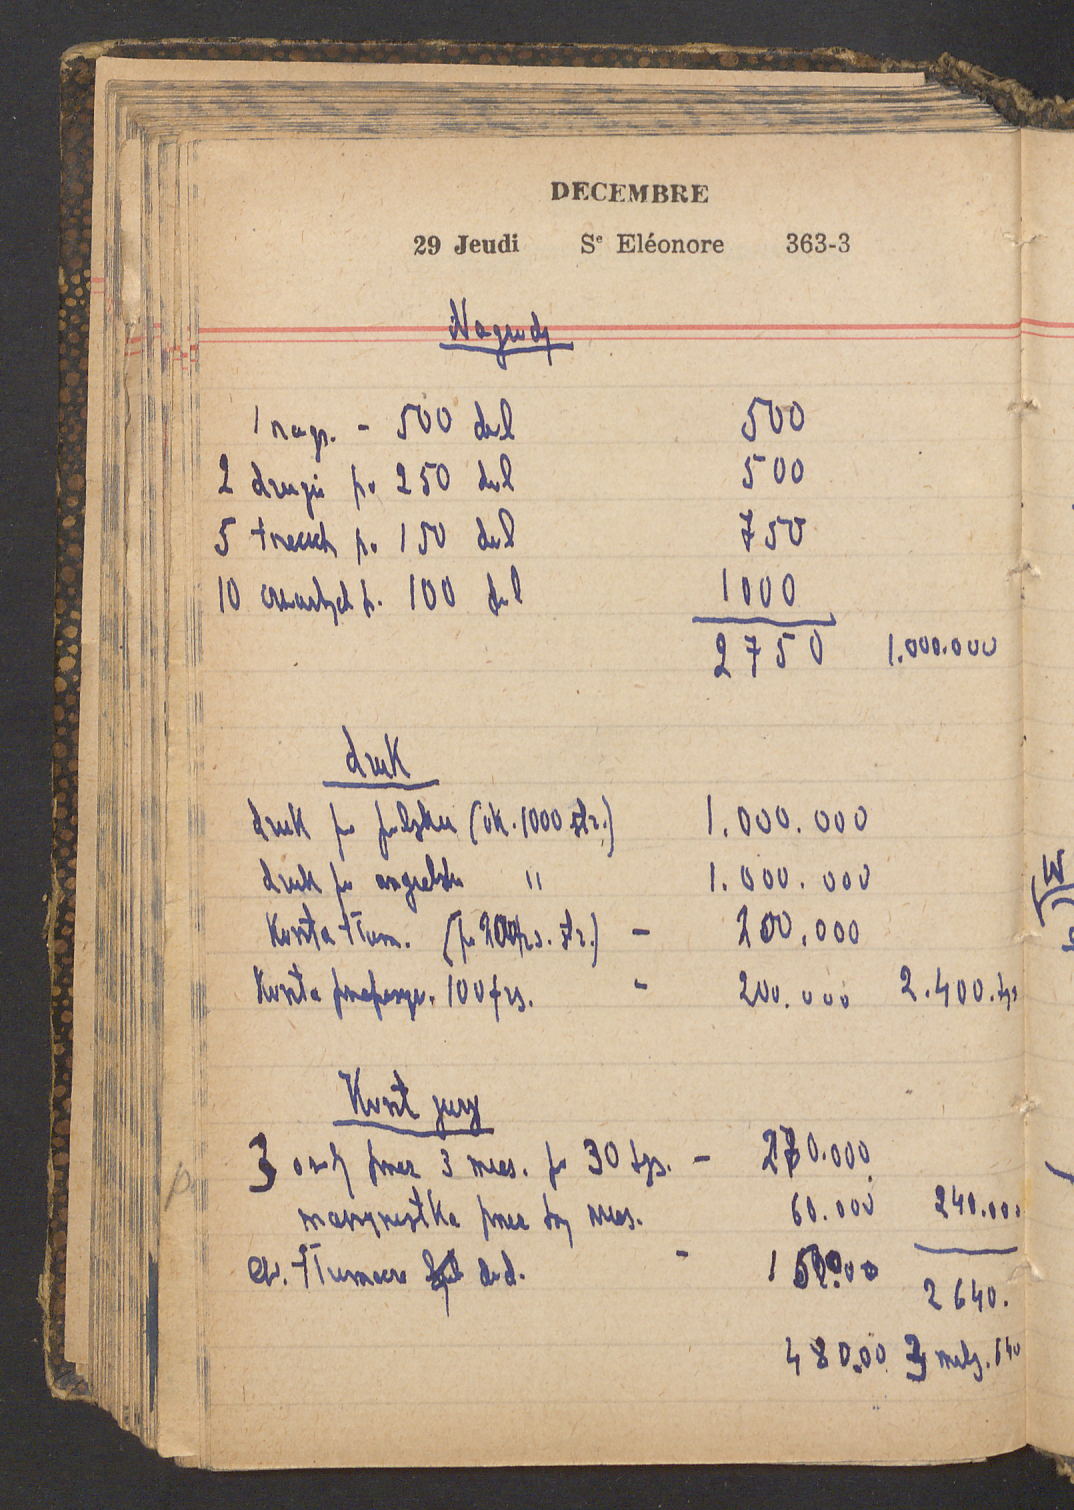 DECEMBRE
29 Jeudi Sᵉ Eléonore 363-3
Nagrody
1 nagr. - 500 dol 500
2 drugie po 250 dol 500
5 trzecich po 150 dol 750
10 czwartych p. 100 dol 1000
2750 1.000.000
druk
druk po polsku (ok. 1000 str.) 1.000.000
druk po angielsku " 1.000.000
Koszta tłum. (po 200 frs. str.) - 200.000
Koszta przepisyw. 100 frs. - 200.000 2.400.tys
Koszt jury
3 osoby przez 3 mies. po 30 tys. - 270.000
maszynistka przez trzy mies. 60.000 240.000
ew. tłumacze dod. -
2640.
480.00 3 milj. 640